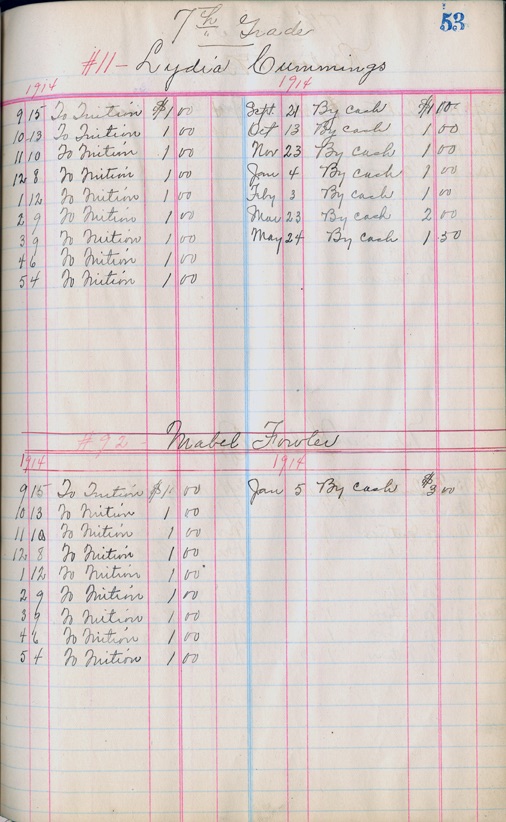 53
7th Grade
#11- Lydia Cummings
1914 1914
9 15 To Tuition $1 00 Sept. 21 By cash $1 00
10 13 To Tuition 1 00 Oct 13 By cash 1 00
11 10 To Tuition 1 00 Nov 23 By cash 1 00
12 8 To Tuition 1 00 Jan 4 By cash 1 00
1 12 To Tuition 1 00 Feby 3 By cash 1 00
2 9 To Tuition 1 00 Mar 23 By cash 2 00
3 9 To Tuition 1 00 May 24 By cash 1 50
4 6 To Tuition 1 00
5 4 To Tuition 1 00
#92- Mabel Fowler
1914 1914
9 15 To Tuition $1 00 Jan 5 By cash $3 00
10 13 To Tuition 1 00
11 10 To Tuition 1 00
12 8 To Tuition 1 00
1 12 To Tuition 1 00
2 9 To Tuition 1 00
3 9 To Tuition 1 00
4 6 To Tuition 1 00
5 4 To Tuition 1 00